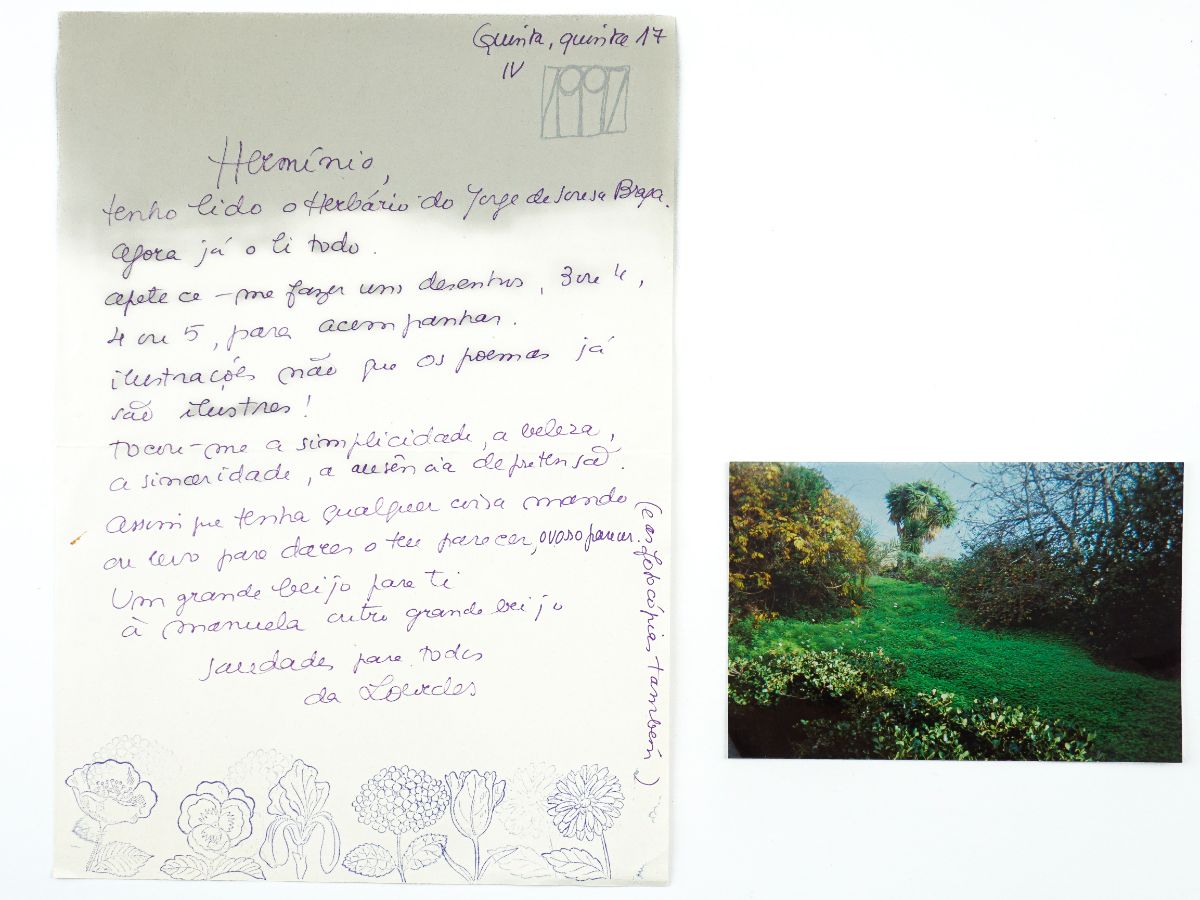 Quinta, quinta 17
IV
1997
Hermínio,
tenho lido o Herbário do Jorge de Sousa Braga.
agora já o li todo.
apetece-me fazer uns desenhos, 3 ou 4,
4 ou 5, para acompanhar.
ilustrações não que os poemas já
são ilustres!
tocou-me a simplicidade, a beleza,
a sinceridade, a ausência de pretensão.
assim que tenha qualquer coisa mando
ou levo para dares o teu parecer, o vosso parecer.
(e as fotocópias também)
Um grande beijo para ti
à manuela outro grande beijo
saudades para todos
da Lourdes